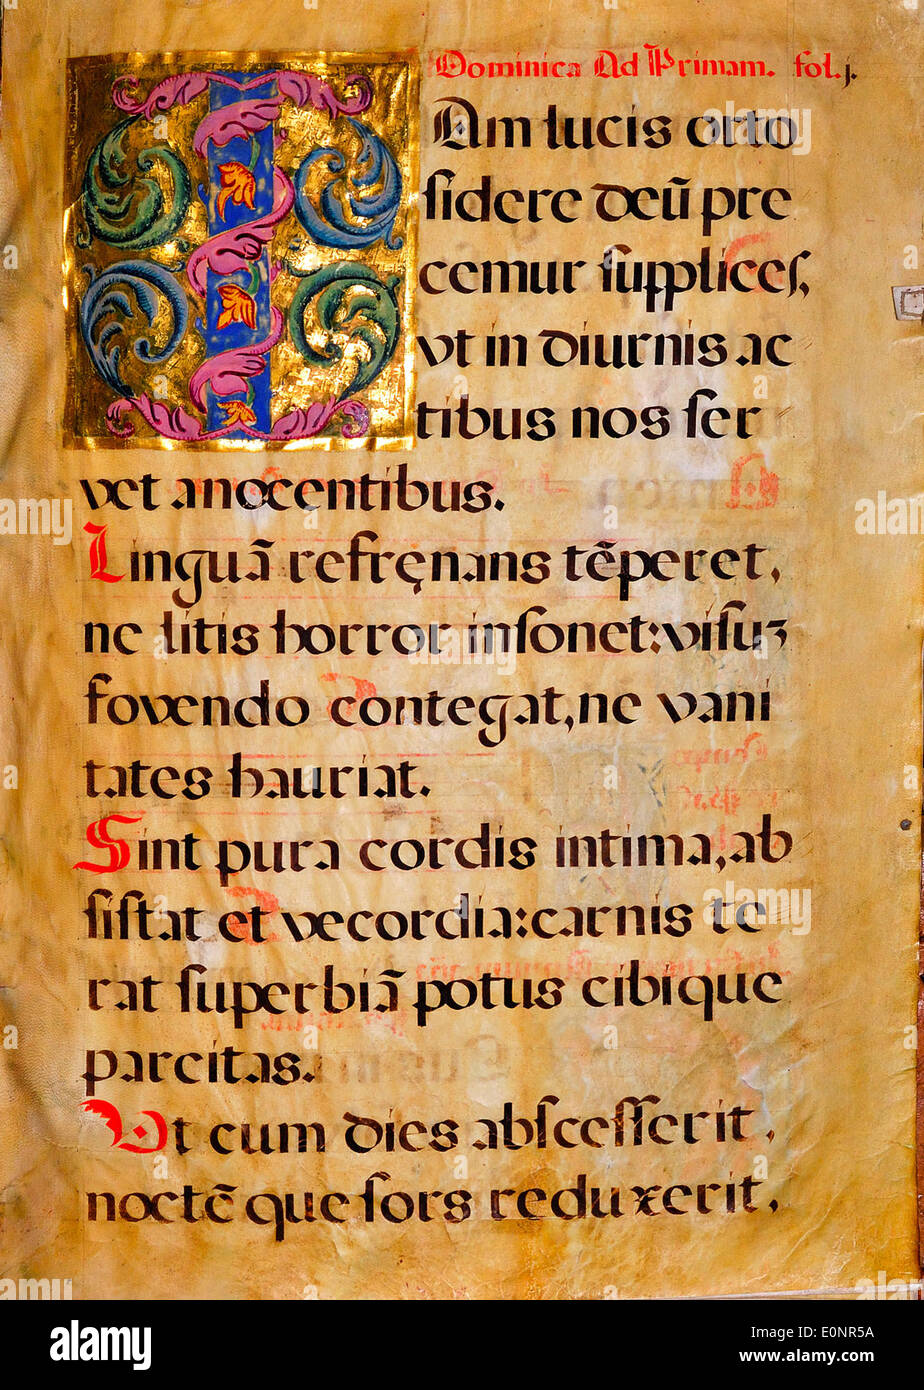 Dominica Ad Primam. fol. j.
IAm lucis orto
sidere deū pre
cemur supplices,
vt in diurnis ac
tibus nos ser
vet a nocentibus.
Linguā refręnans tēperet,
ne litis horror insonet: visuz
fovendo contegat, ne vani
tates hauriat.
Sint pura cordis intima, ab
sistat et vecordia: carnis te
rat superbiā potus cibique
parcitas.
Vt cum dies abscesserit,
noctē que sors reduxerit,
alamy
Image ID: E0NR5A
www.alamy.com